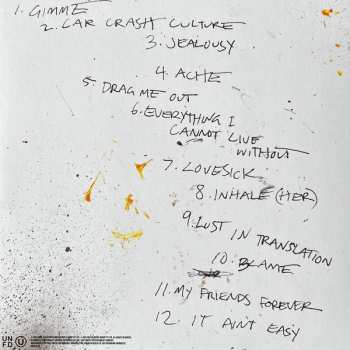 1. GIMME
2. CAR CRASH CULTURE
3. JEALOUSY
4. ACHE
5. DRAG ME OUT
6. EVERYTHING I
CANNOT LIVE
WITHOUT
7. LOVESICK
8. INHALE (HER)
9. LUST IN TRANSLATION
10. BLAME
11. MY FRIENDS FOREVER
12. IT AIN'T EASY
UN
FD